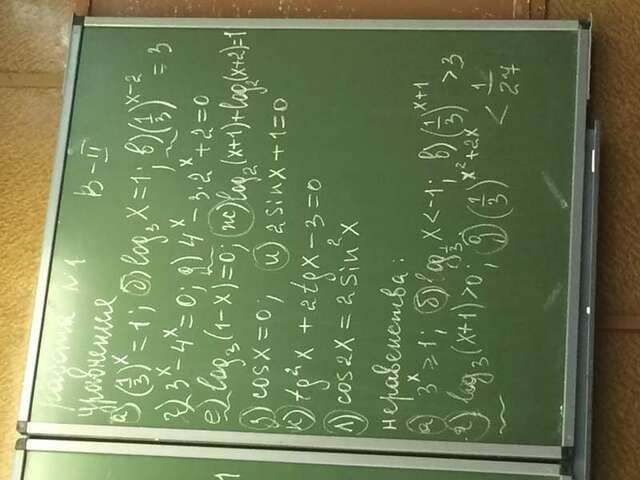 работа №1
уравнения В-II
а) (1/3)^x = 1; б) log₃ x = 1; в) (1/3)^(x-2) = 3
г) 3^x - 4^x = 0; д) 4^x - 3·2^x + 2 = 0
е) log₃ (1-x) = 0; ж) log₂ (x+1) + log₂ (x+2) = 1
з) cos x = 0; и) 2 sin x + 1 = 0
к) tg² x + 2 tg x - 3 = 0
л) cos 2x = 2 sin² x
неравенства:
а) 3^x ≥ 1; б) log_(1/3) x < -1; в) (1/3)^(x+1) > 3
г) log₃ (x+1) > 0; д) (1/3)^(x²+2x) < 1/27